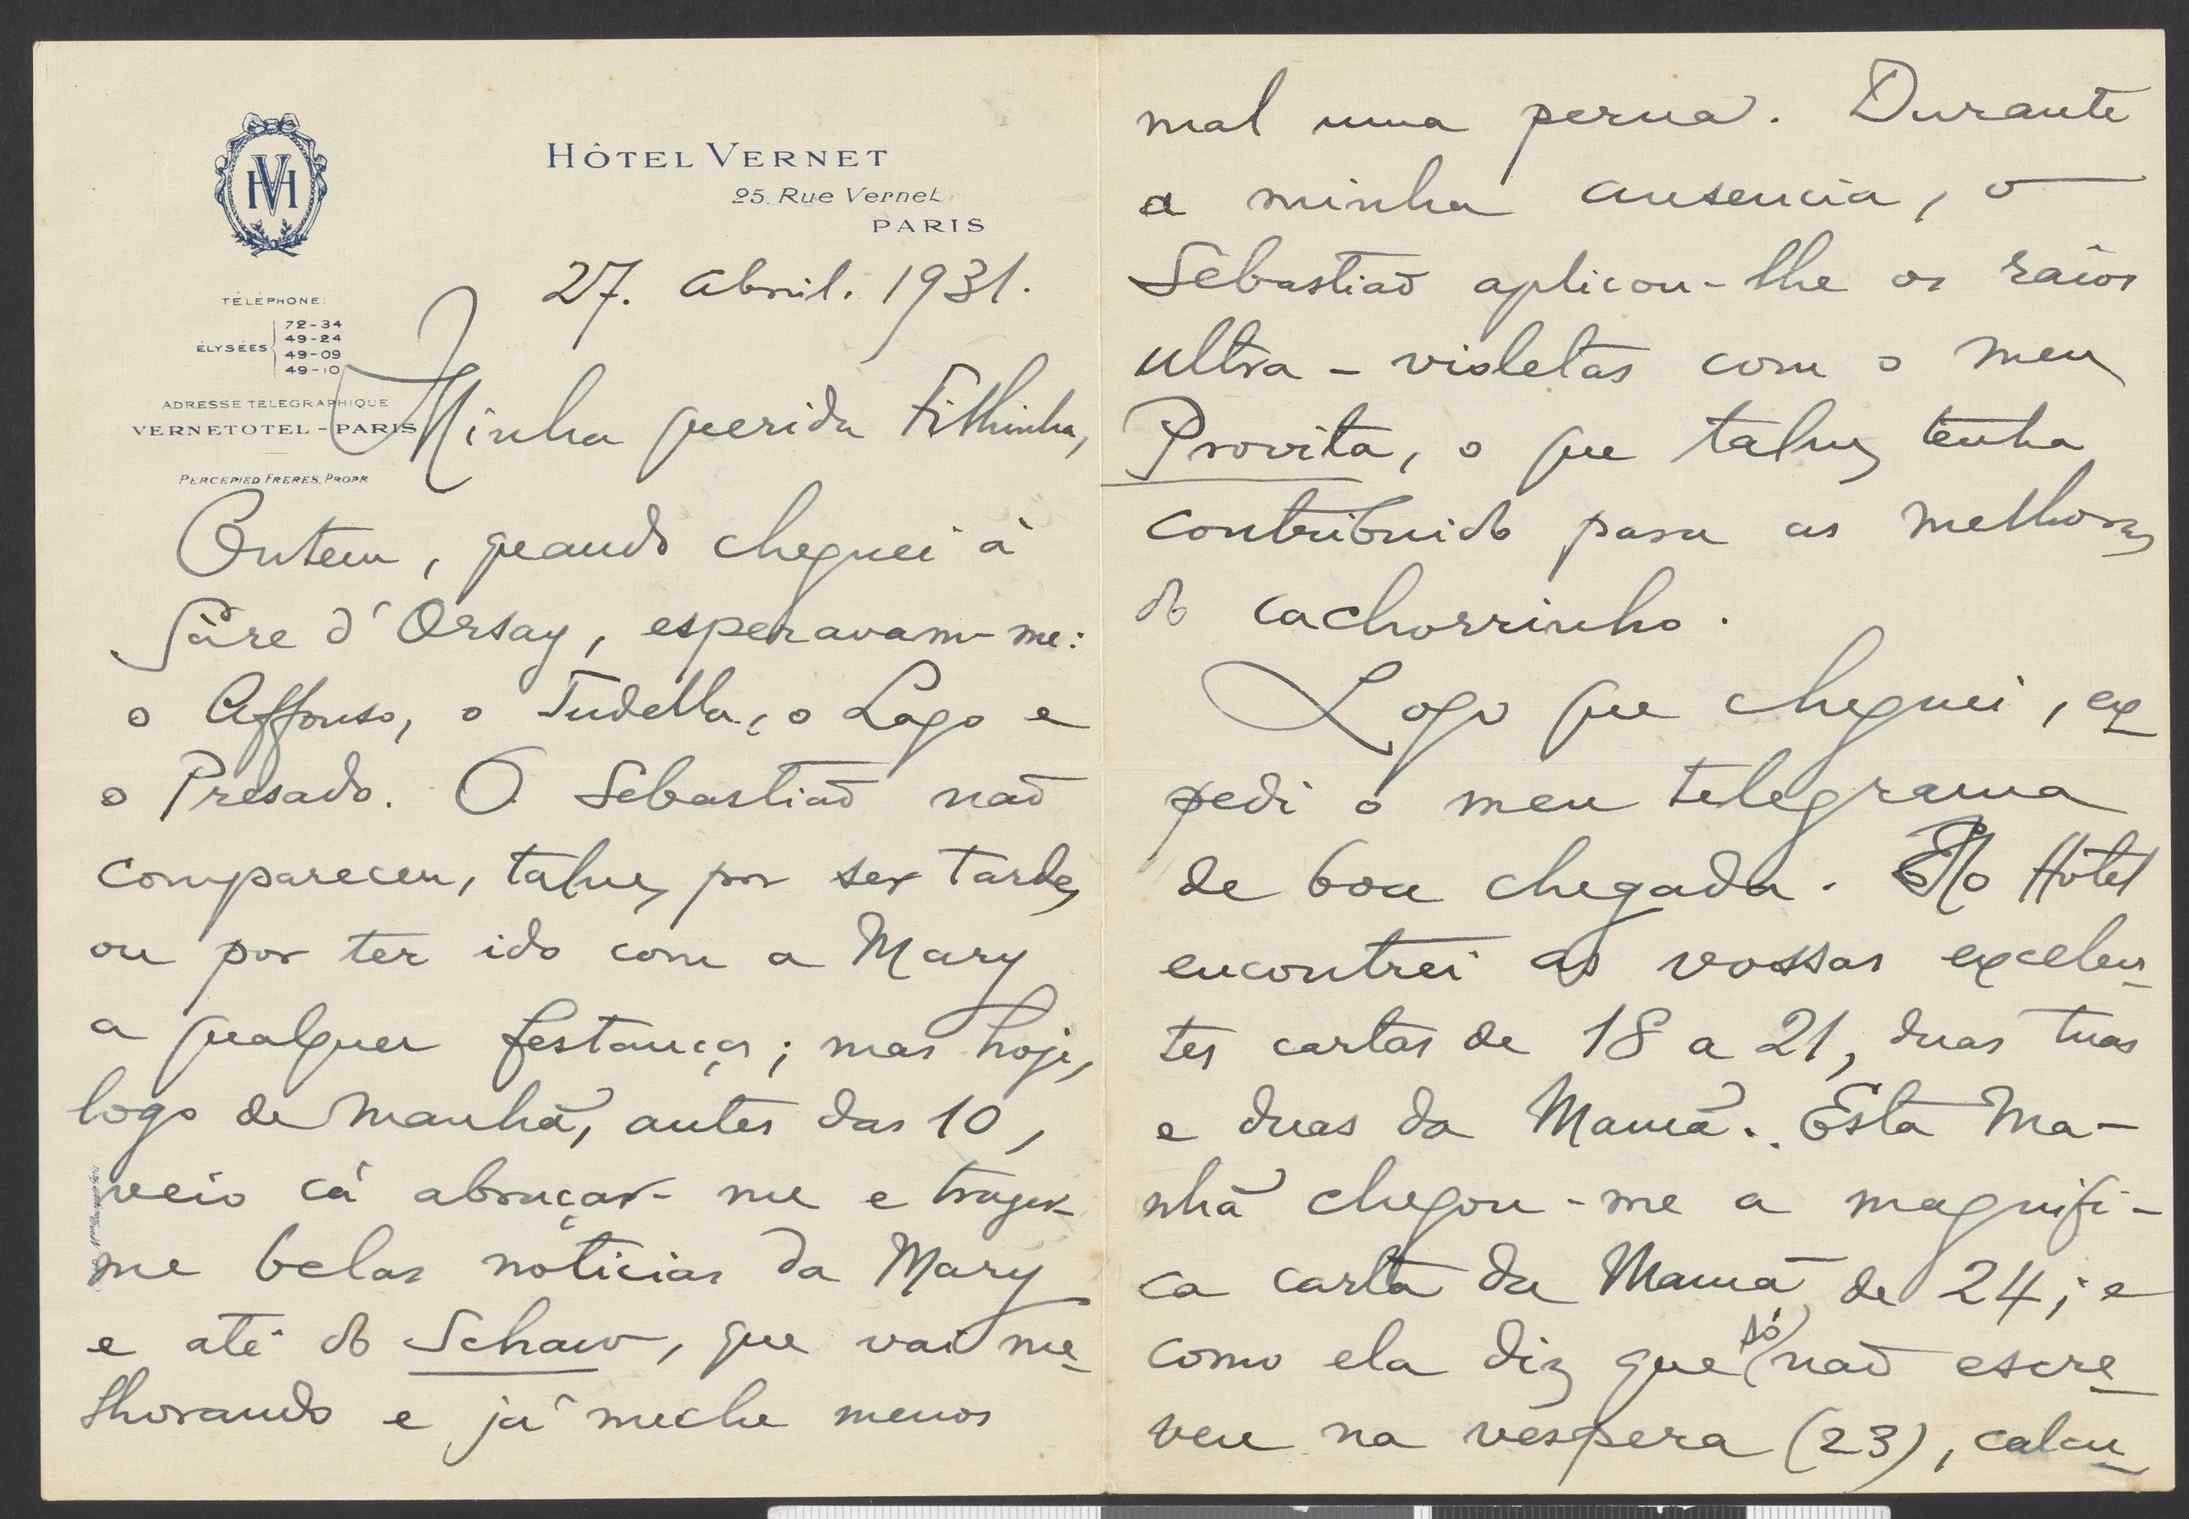 HÔTEL VERNET
25. Rue Vernet.
PARIS
TÉLÉPHONE:
ÉLYSÉES
72-34
49-24
49-09
49-10
ADRESSE TÉLÉGRAPHIQUE
VERNETOTEL - PARIS
PERCEPIED FRÈRES, PROPR
27. Abril. 1931.
Minha querida Filhinha,
Ontem, quando cheguei à
Gare d'Orsay, esperavam-me:
o Affonso, o Tudella, o Lago e
o Presado. O Sebastião não
compareceu, talvez por ser tarde,
ou por ter ido com a Mary
a qualquer festança; mas hoje,
logo de manhã, antes das 10,
veio cá abraçar-me e trazer-
me belas noticias da Mary
e até do Schaw, que vai me-
lhorando e já meche menos
mal uma perna. Durante
a minha ausencia, o
Sebastião aplicou-lhe os raios
ultra-violetas com o meu
Provita, o que talvez tenha
contribuido para as melhoras
do cachorrinho.
Logo que cheguei, ex-
pedi o meu telegrama
de boa chegada. No Hôtel
encontrei as vossas excelen-
tes cartas de 18 a 21, duas tuas
e duas da Mamã. Esta ma-
nhã chegou-me a magnifi-
ca carta da Mamã de 24; e
como ela diz que só não escre-
veu na vespera (23), calcu-